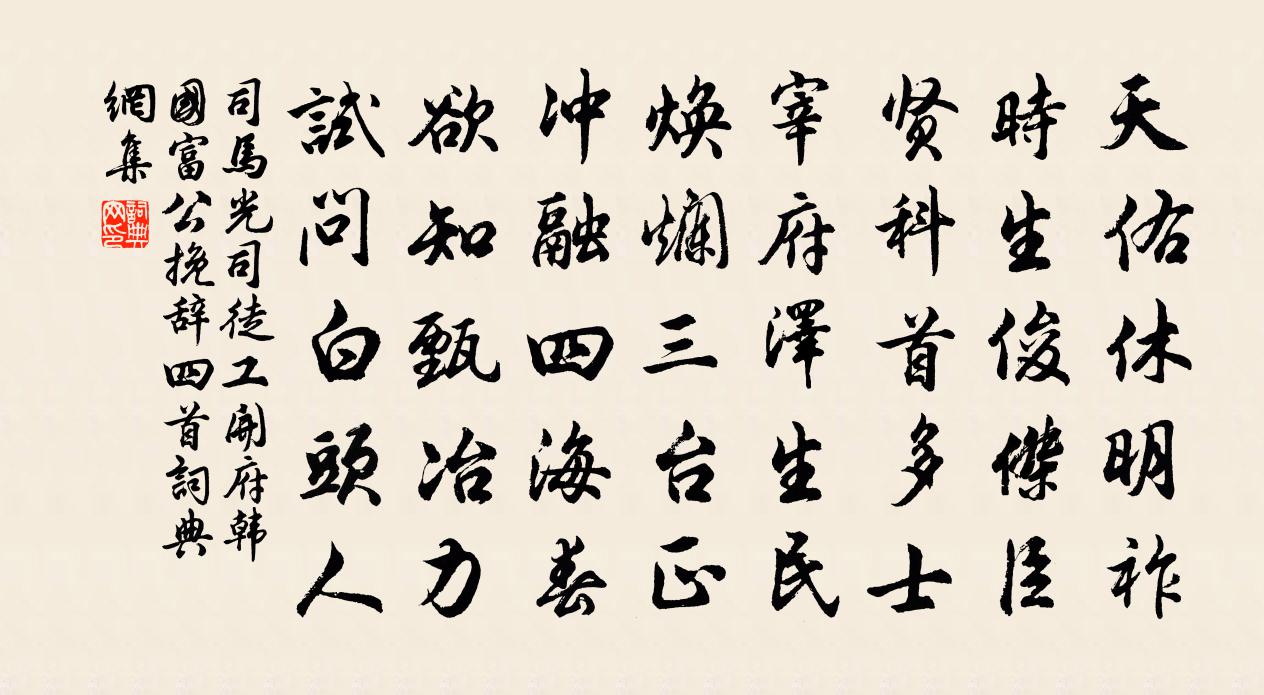 天佑休明祚
時生俊傑臣
贤科首多士
宰府澤生民
焕爛三台正
冲融四海春
欲知甄冶力
試問白頭人
司馬光司徒工開府韩
國富公挽辞四首詞典
網集
詞典網印